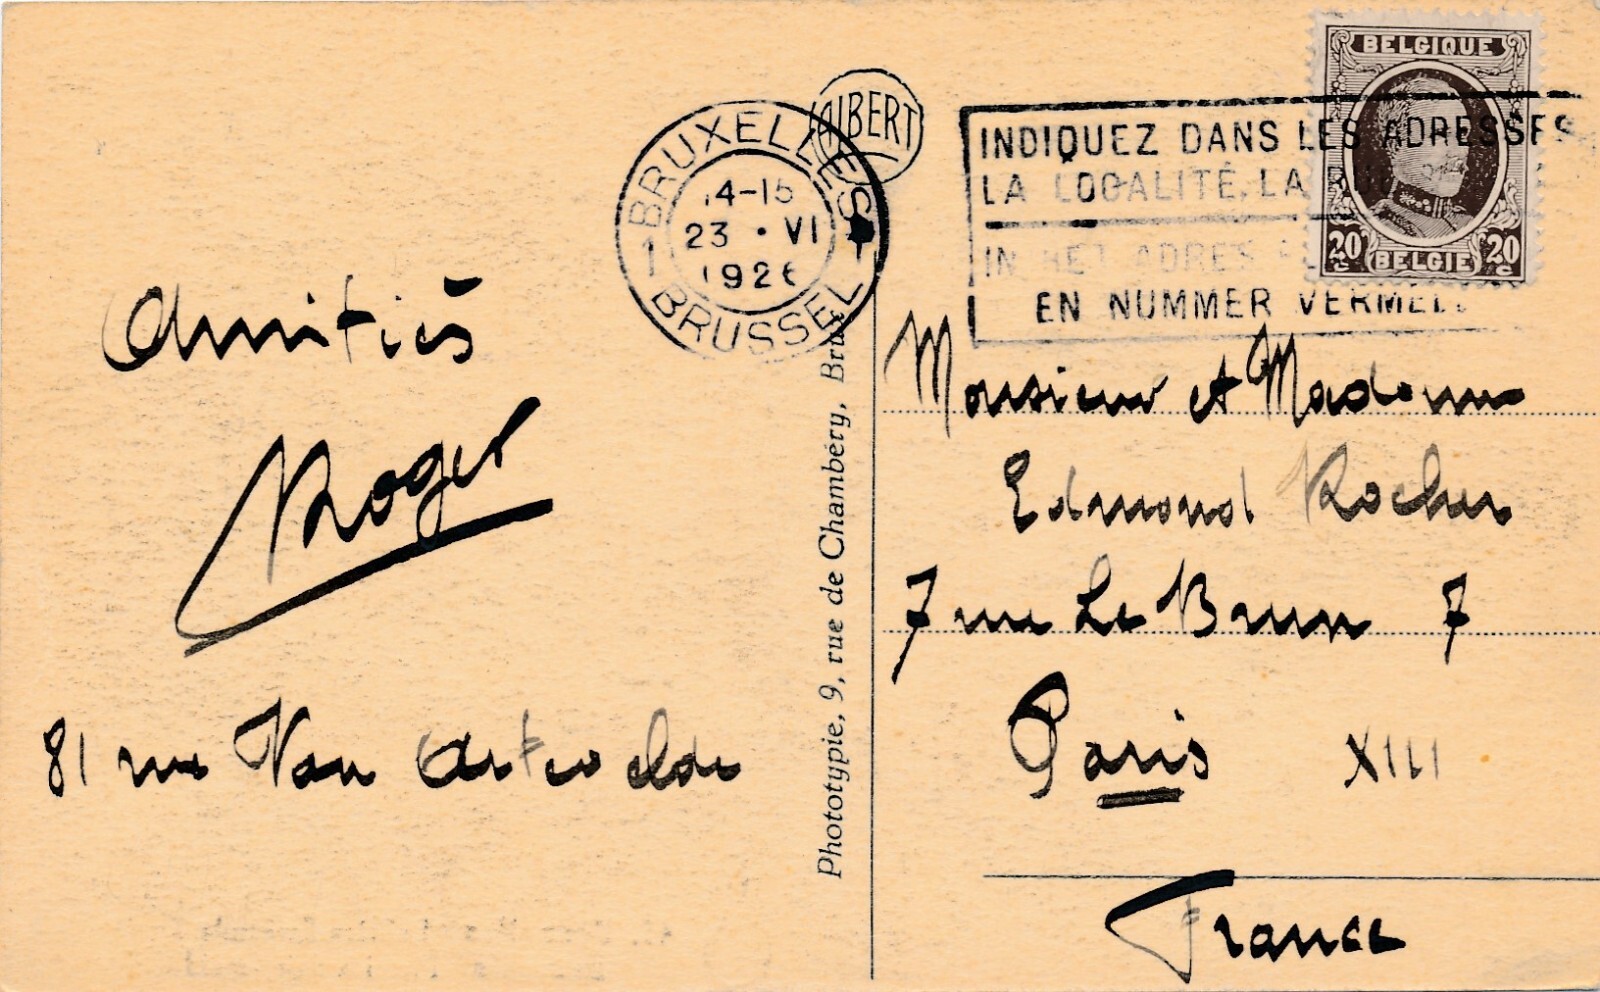 BELGIQUE
20 c 20 c
BELGIE
ALBERT
BRUXELLES
14-15
23 • VI
1926
1 1
BRUSSEL
INDIQUEZ DANS LES ADRESSES
LA LOCALITÉ, LA
IN HET ADRES
EN NUMMER VERMEL
Amitiés
Roger
81 rue Van Artevelde
Phototypie, 9, rue de Chambéry, Brux
Monsieur et Madame
Edmond Rocher
7 rue Le Brun 7
Paris XIII
France